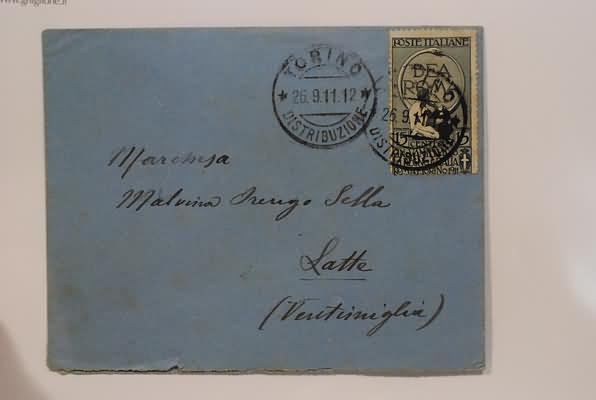 www.ghiglione.it
TORINO
* 26.9.11.12 *
DISTRIBUZIONE
POSTE ITALIANE
DEA
ROMA
26.9.11.12
DISTRIBUZIONE
15
Marchesa
Malvina Sella
Latte
(Ventimiglia)